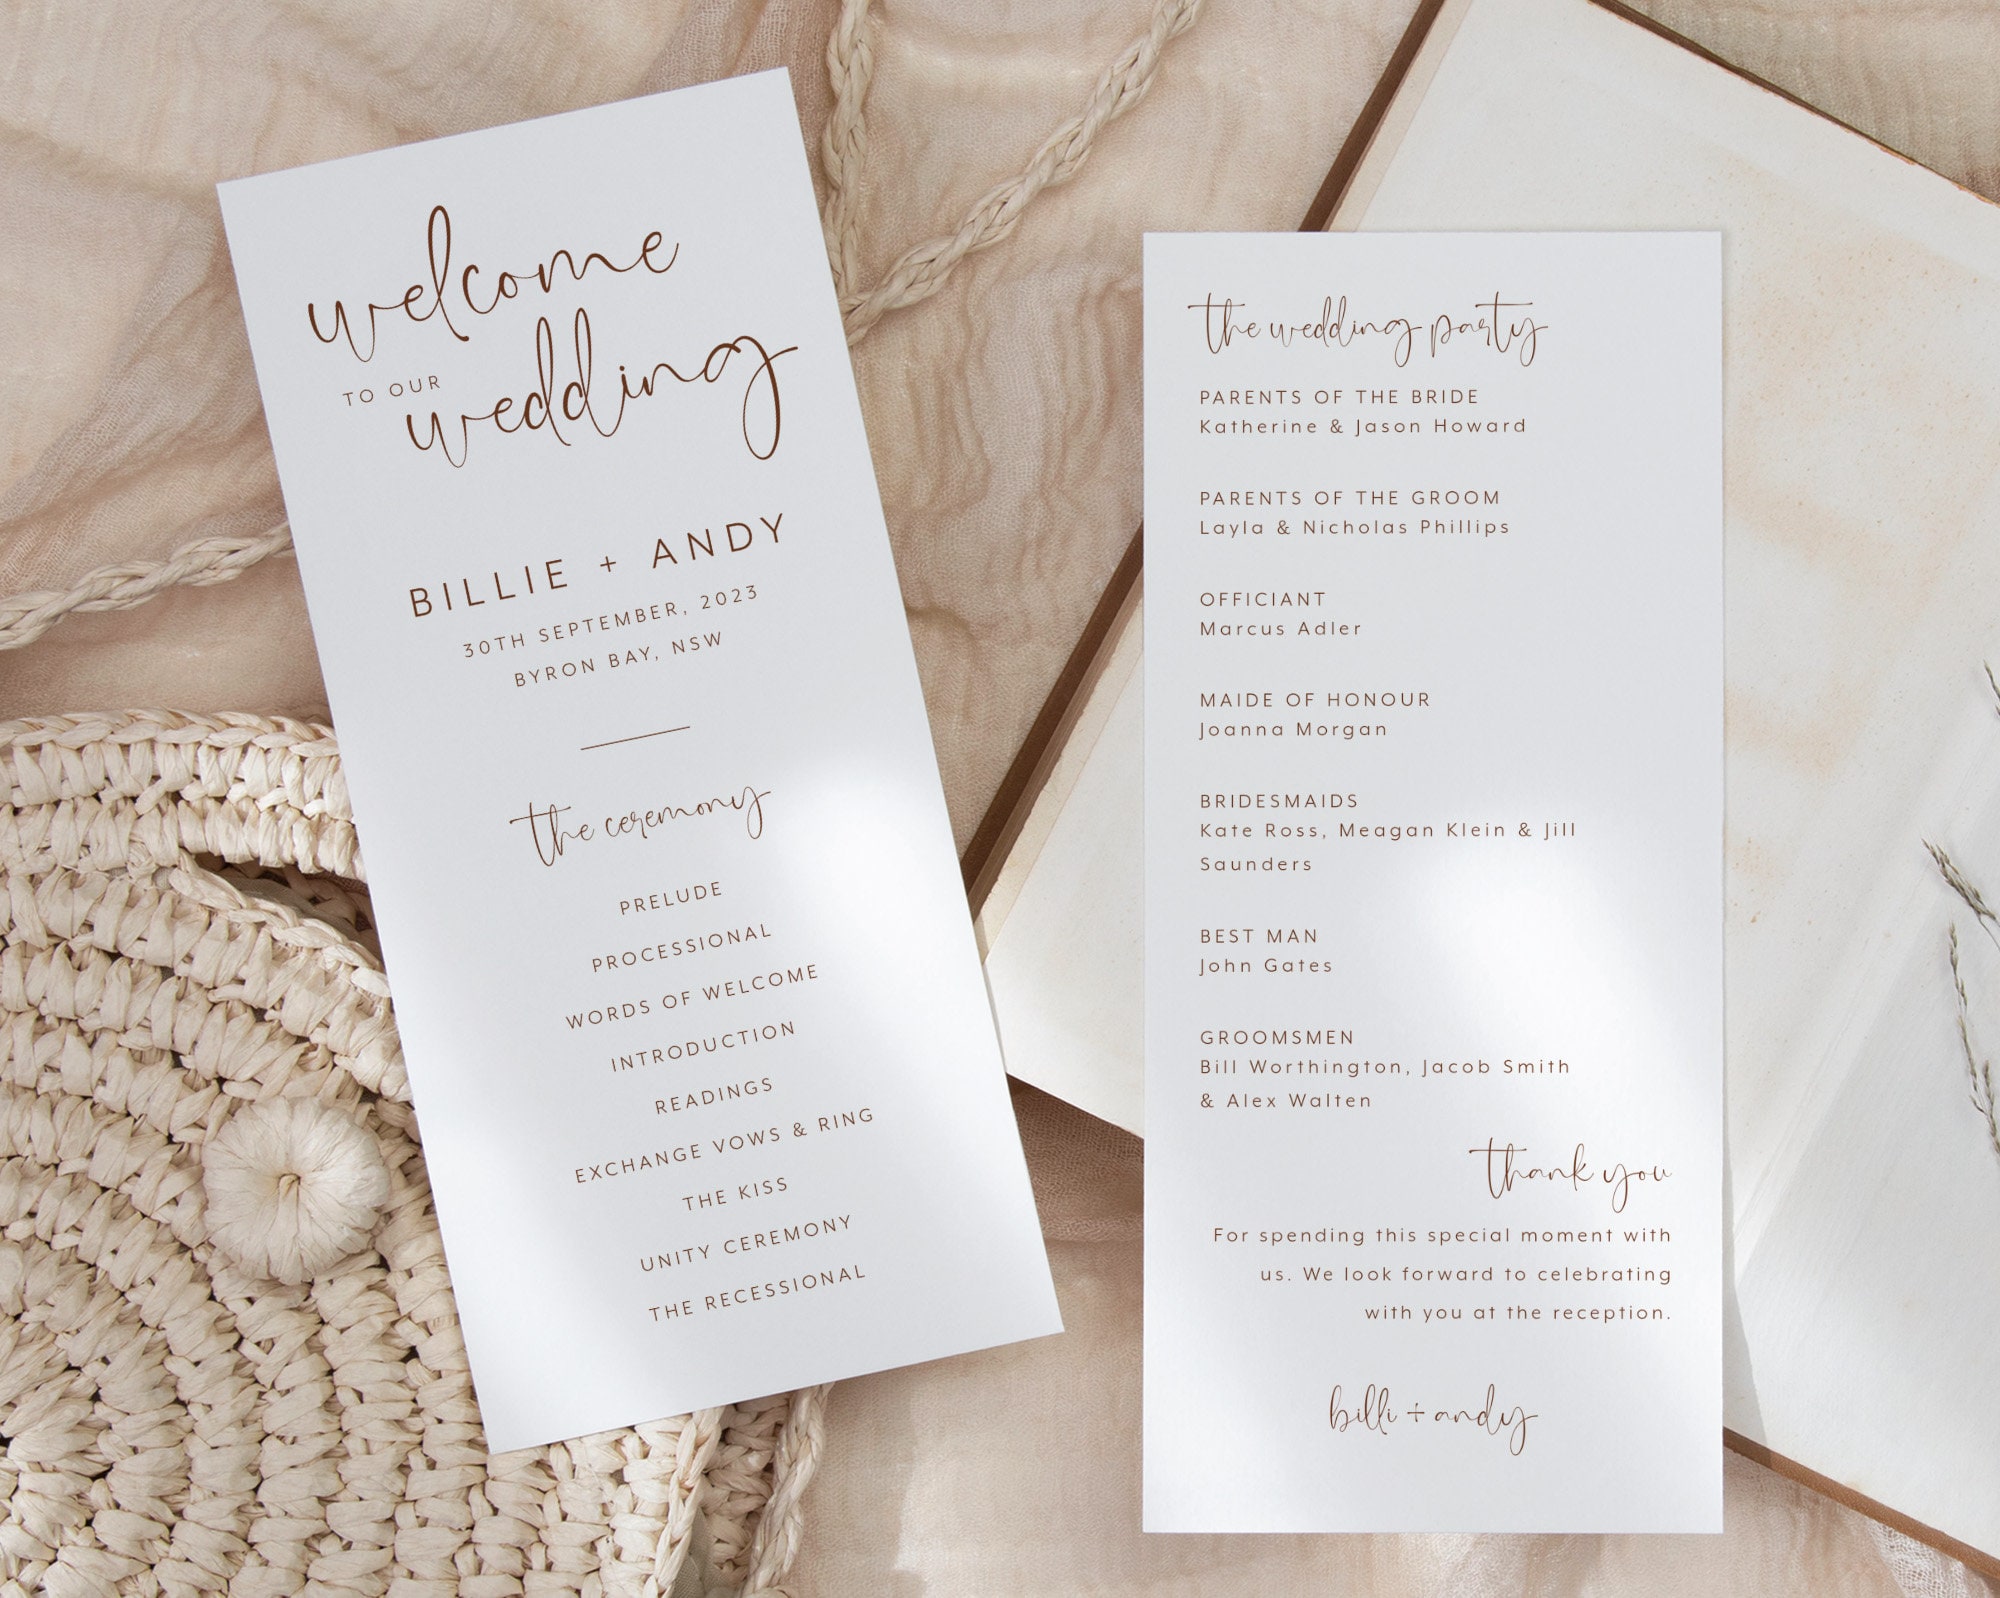 welcome
TO OUR
wedding
BILLIE + ANDY
30TH SEPTEMBER, 2023
BYRON BAY, NSW
the ceremony
PRELUDE
PROCESSIONAL
WORDS OF WELCOME
INTRODUCTION
READINGS
EXCHANGE VOWS & RING
THE KISS
UNITY CEREMONY
THE RECESSIONAL
the wedding party
PARENTS OF THE BRIDE
Katherine & Jason Howard
PARENTS OF THE GROOM
Layla & Nicholas Phillips
OFFICIANT
Marcus Adler
MAIDE OF HONOUR
Joanna Morgan
BRIDESMAIDS
Kate Ross, Meagan Klein & Jill
Saunders
BEST MAN
John Gates
GROOMSMEN
Bill Worthington, Jacob Smith
& Alex Walten
thank you
For spending this special moment with
us. We look forward to celebrating
with you at the reception.
billi + andy